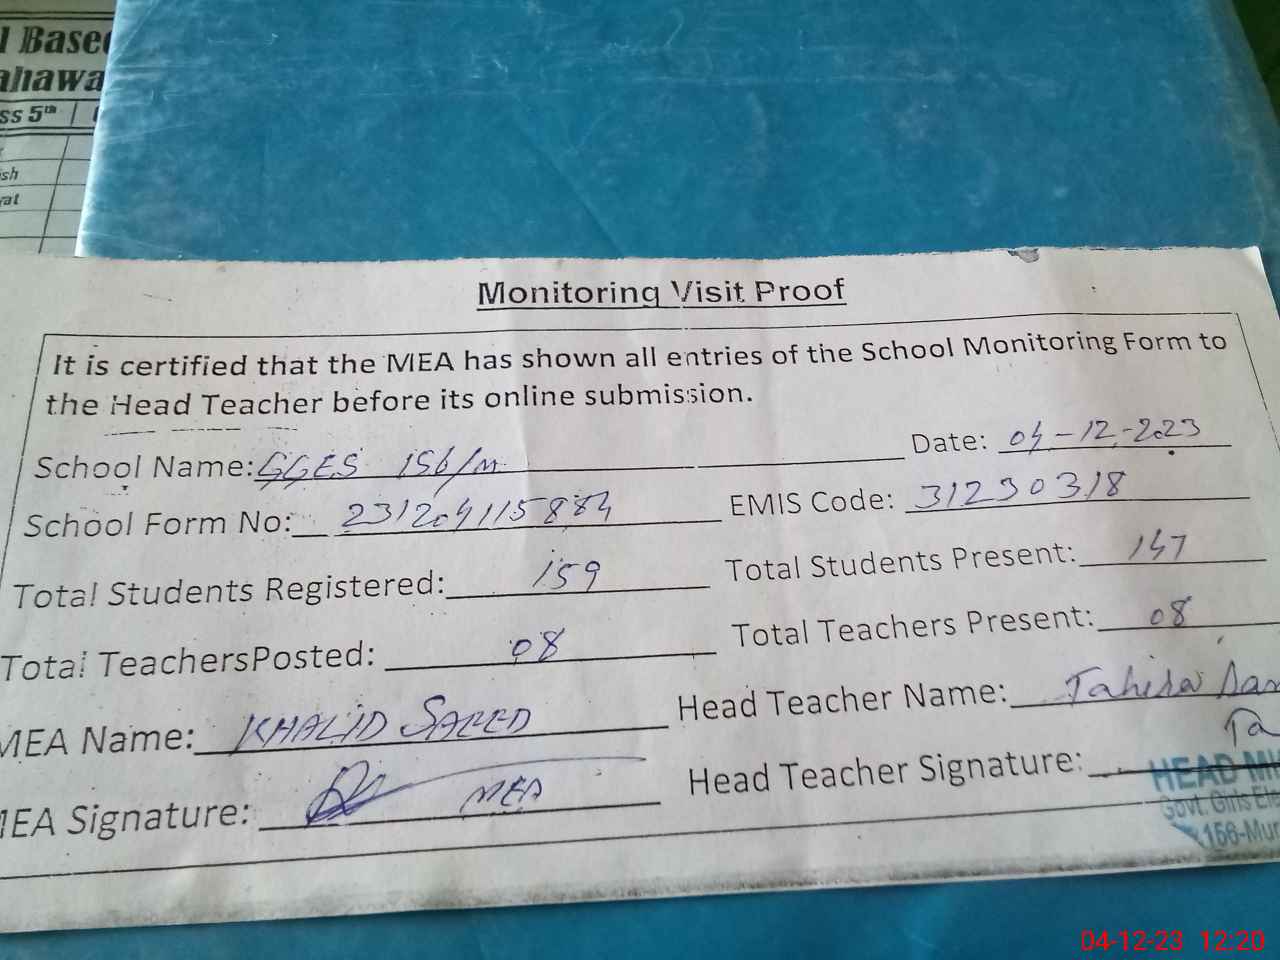 l Based
ahawa
ss 5th
ish
yat
Monitoring Visit Proof
It is certified that the MEA has shown all entries of the School Monitoring Form to
the Head Teacher before its online submission.
School Name: GGES 156/m Date: 04-12-2023
School Form No: 231204115884 EMIS Code: 31230318
Total Students Registered: 159 Total Students Present: 147
Total TeachersPosted: 08 Total Teachers Present: 08
MEA Name: KHALID SAEED Head Teacher Name: Tahira
MEA Signature: MEA Head Teacher Signature: Ta
HEAD MI
Govt. Girls Ele
156-Mur
04-12-23 12:20